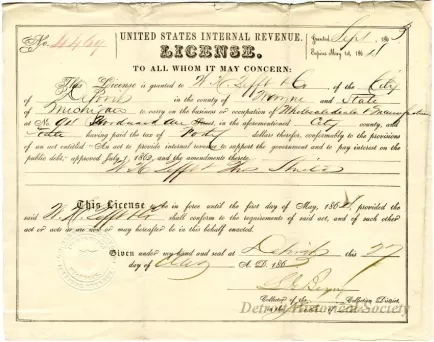 No. 4469
UNITED STATES INTERNAL REVENUE.
Granted Sept 1863
Expires May 1st, 1864
LICENSE.
TO ALL WHOM IT MAY CONCERN:
This License is granted to W. H. Tefft & Co of the City
of Detroit in the county of Wayne and State
of Michigan to carry on the business or occupation of Wholesale dealer
at No. Woodward Ave in the aforementioned City county, and
State having paid the tax of dollars therefor, conformably to the provisions
of an act entitled "An act to provide internal revenue to support the government and to pay interest on the
public debt," approved July 1, 1862, and the amendments thereto.
W. H. Tefft
This License to be in force until the first day of May, 1864, provided the
said W. H. Tefft & Co shall conform to the requirements of said act, and of such other
act or acts as are now or may hereafter be in this behalf enacted.
Given under my hand and seal at Detroit this 27
day of A. D. 186
Collector of the Collection District
Detroit Historical Society